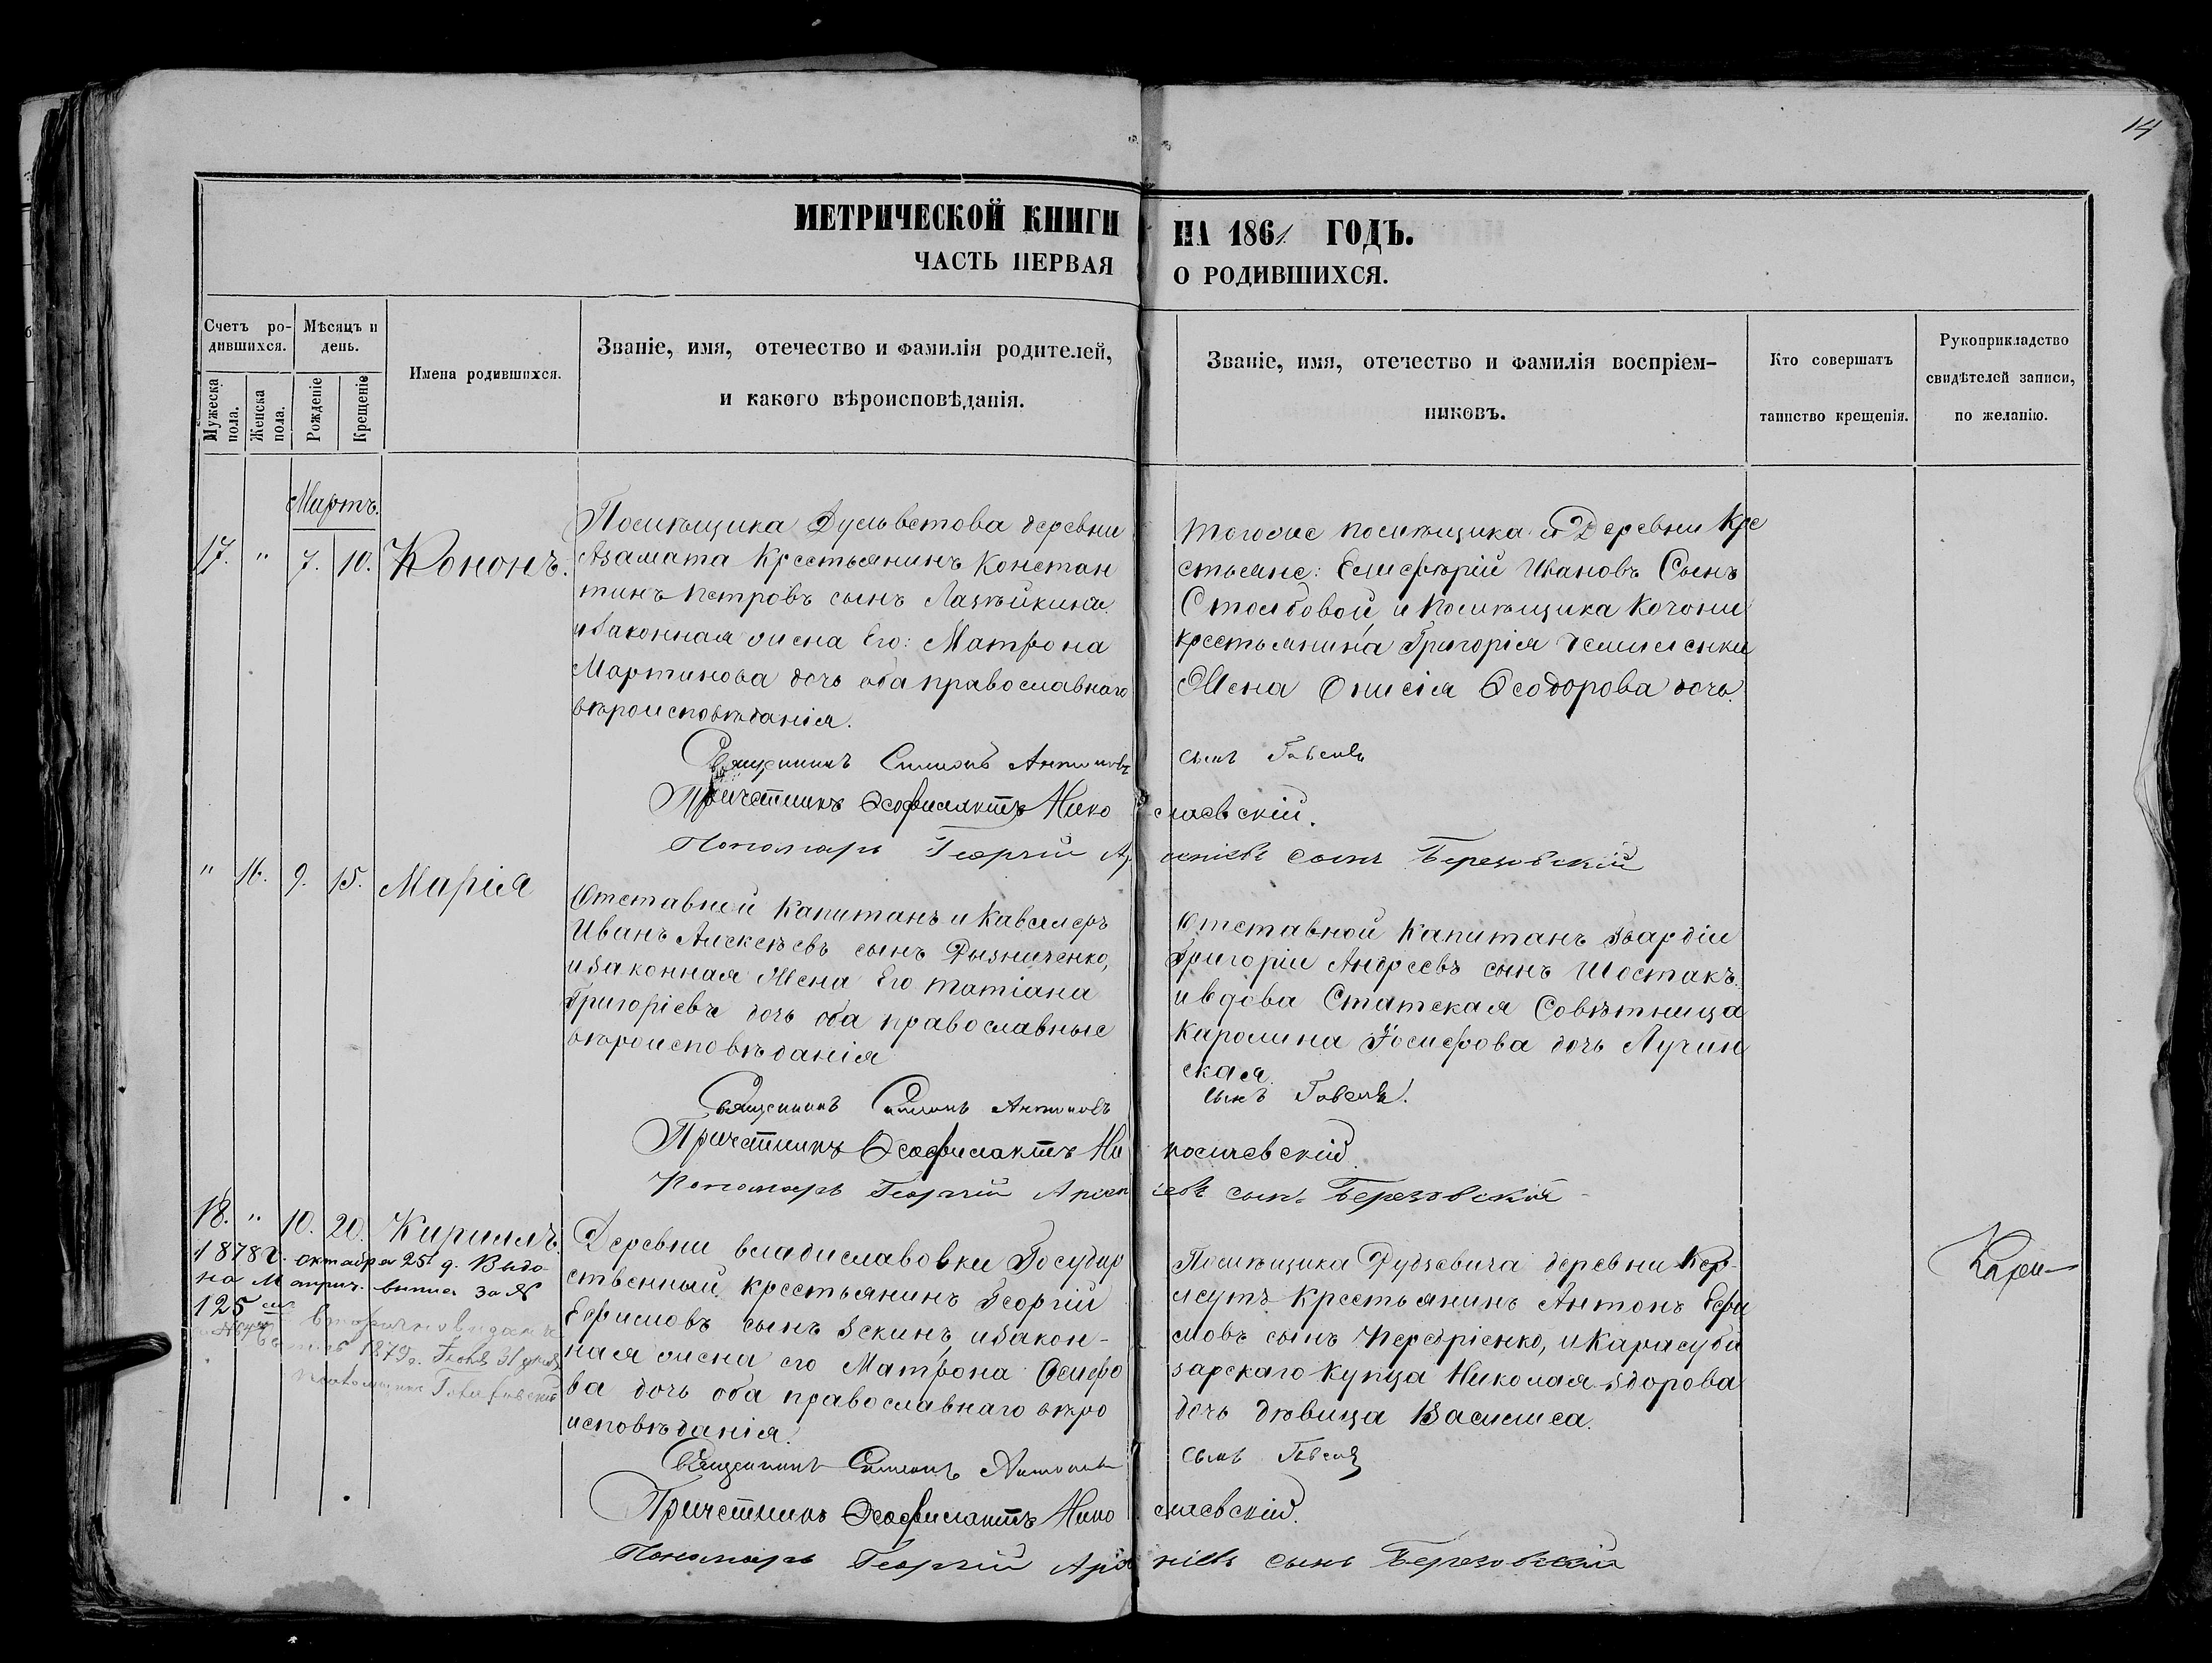 14
МЕТРИЧЕСКОЙ КНИГИ НА 1861 ГОДЪ.
ЧАСТЬ ПЕРВАЯ О РОДИВШИХСЯ.
Счетъ ро-
дившихся.
Мужеска
пола.
Женска
пола.
Мѣсяцъ и
день.
Рожденіе
Крещеніе
Имена родившихся.
Званіе, имя, отечество и фамилія родителей,
и какого вѣроисповѣданія.
Званіе, имя, отечество и фамилія воспріем-
никовъ.
Кто совершатъ
таинство крещенія.
Рукоприкладство
свидѣтелей записи,
по желанію.
Мартъ.
17. " 7. 10. Кононъ.
Помѣщика деревни
Азамата Крестьянинъ Констан
тинъ Петровъ сынъ
и Законная жена Его: Матрона
Мартинова дочь оба православнаго
вѣроисповѣданія.
Тогоже помѣщика и Деревни Кре
стьяне: Елисферій Ивановъ Сынъ
Столбовой, и Помѣщика Кочони
крестьянина Григорія
Жена Онисія Ѳеодорова дочь.
Священникъ Симонъ Антоновъ сынъ
Причетникъ Ѳеофилактъ Николаевскій.
Пономарь Георгій сынъ Березовскій
" 16. 9. 15. Марія
Отставной Капитанъ и Кавалеръ
Иванъ Алексѣевъ сынъ Рызниченко,
и Законная Жена Его Татіана
Григоріева дочь оба православные
вѣроисповѣданія
Отставной Капитанъ Гвардіи
Григорій Андреевъ сынъ Шостакъ
и вдова Статская Совѣтница
Каролина Іосифова дочь Лучин
ская.
Священникъ Симонъ Антоновъ сынъ
Причетникъ Ѳеофилактъ Николаевскій
Пономарь Георгій сынъ Березовскій
18. " 10. 20. Кириллъ.
1878 г. октября 25 д. Выда
на Метрич. выпис за №
125
1879 г.
Деревни Владиславовки Государ
ственный крестьянинъ Георгій
Ефимовъ сынъ Зскинъ, и Закон-
ная жена его Матрона Осифо
ва дочь оба православнаго вѣро
исповѣданія.
Помѣщика Дудзевича деревни Кор-
крестьянинъ Антонъ Ефи
мовъ сынъ и Карасуба
зарскаго Купца Николая Здорова
дочь дѣвица Василиса.
Священникъ Симонъ Антоновъ сынъ
Причетникъ Ѳеофилактъ Николаевскій.
Пономарь Георгій сынъ Березовскій